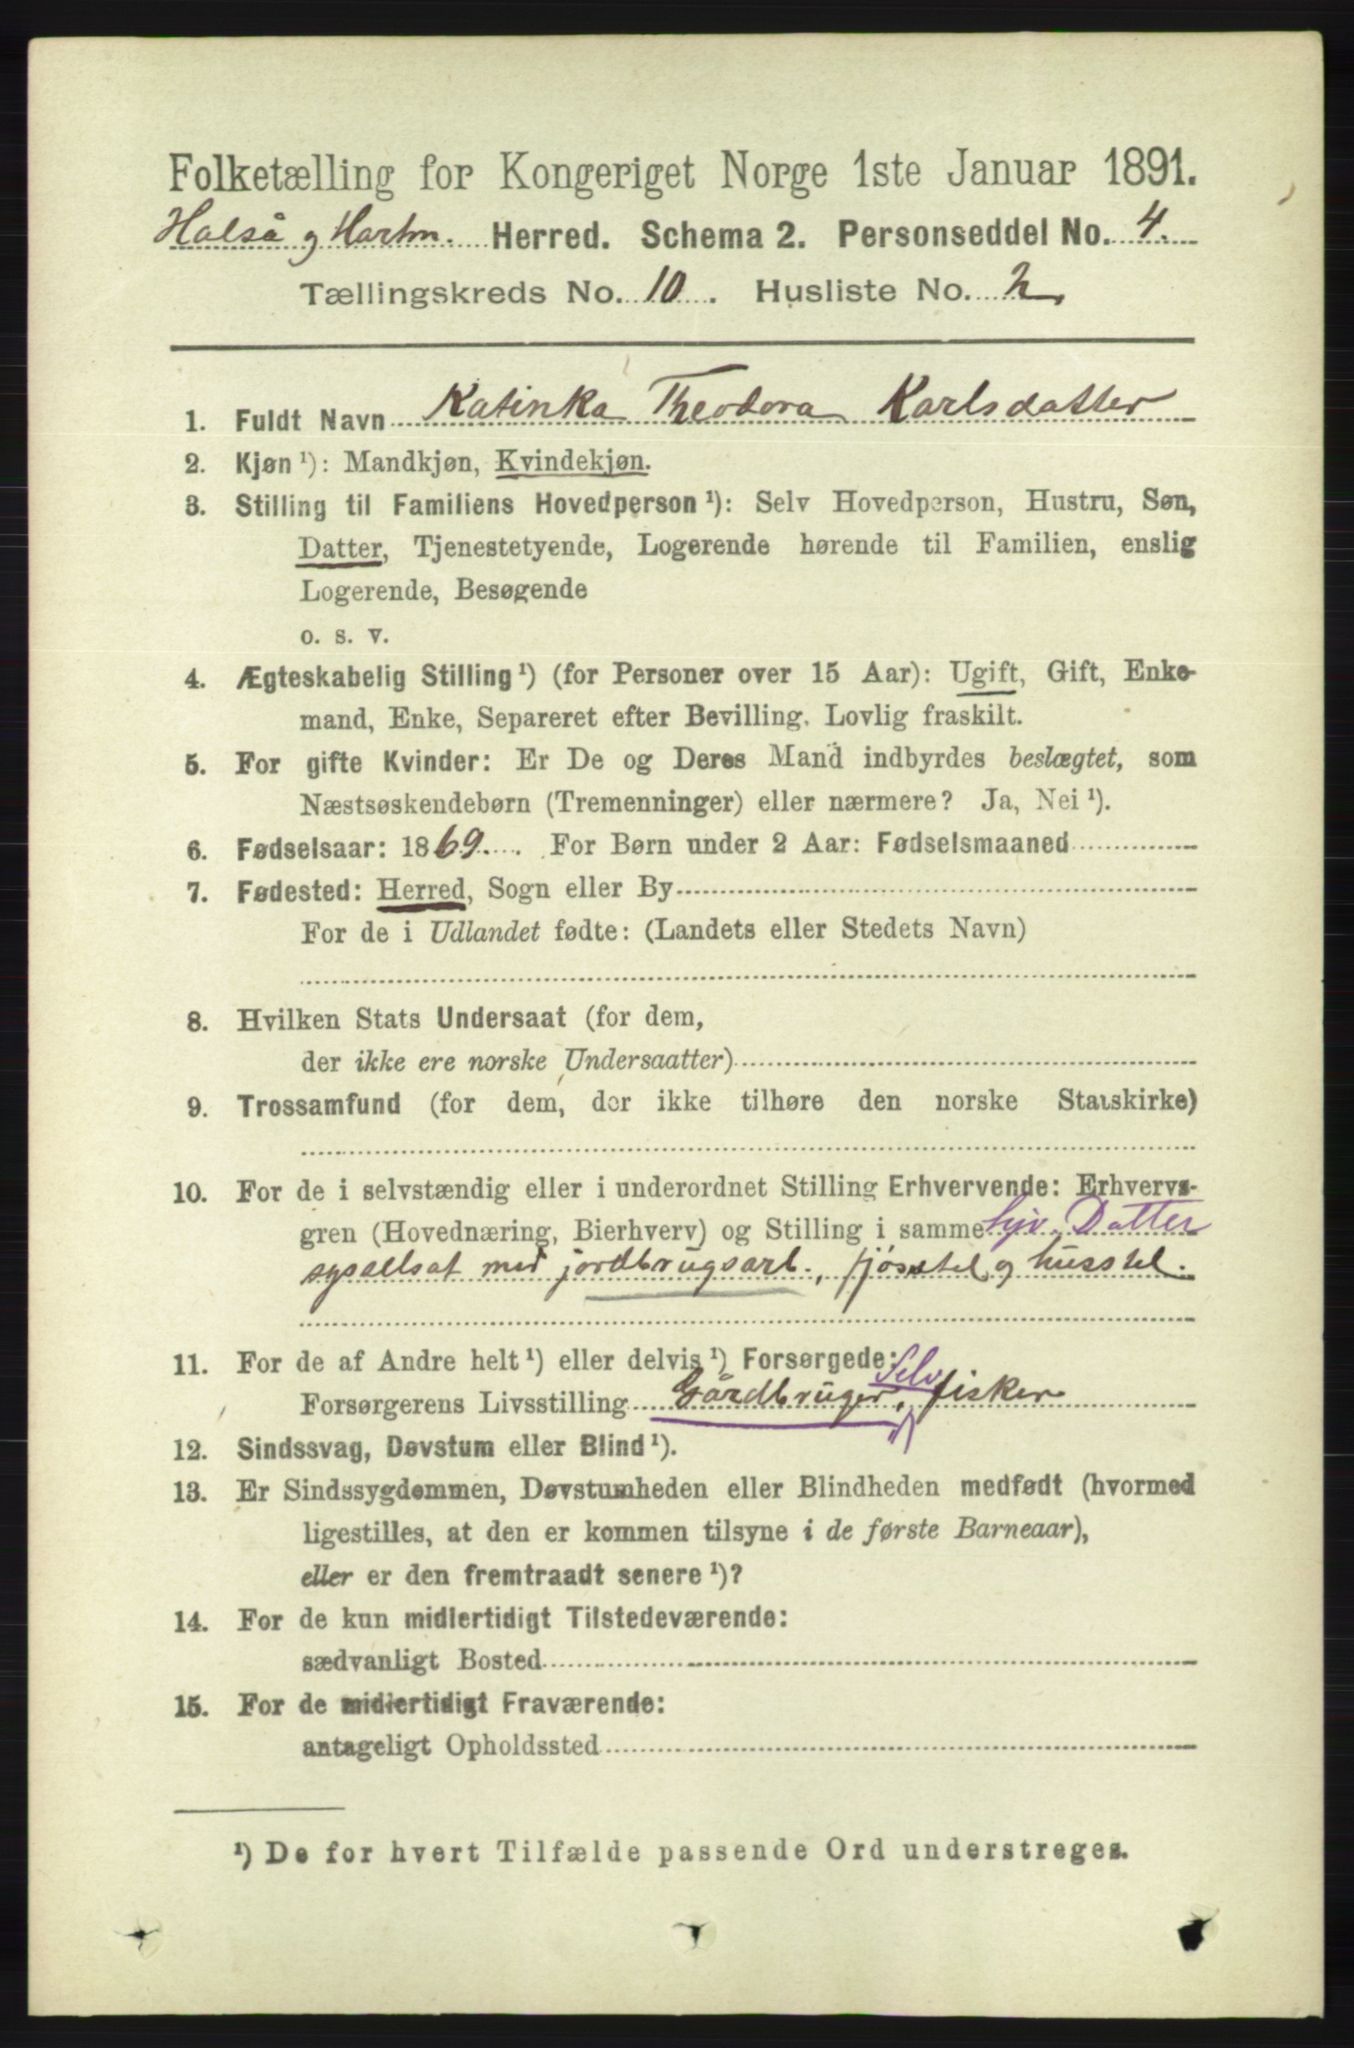 Folketælling for Kongeriget Norge 1ste Januar 1891.
Halså og Hartm. Herred. Schema 2. Personseddel No. 4.
Tællingskreds No. 10. Husliste No. 2
1. Fuldt Navn Katinka Theodora Karlsdatter
2. Kjøn ¹): Mandkjøn, Kvindekjøn.
3. Stilling til Familiens Hovedperson ¹): Selv Hovedperson, Hustru, Søn,
Datter, Tjenestetyende, Logerende hørende til Familien, enslig
Logerende, Besøgende
o. s. v.
4. Ægteskabelig Stilling ¹) (for Personer over 15 Aar): Ugift, Gift, Enke-
mand, Enke, Separeret efter Bevilling. Lovlig fraskilt.
5. For gifte Kvinder: Er De og Deres Mand indbyrdes beslægtet, som
Næstsøskendebørn (Tremenninger) eller nærmere? Ja, Nei ¹).
6. Fødselsaar: 1869. For Børn under 2 Aar: Fødselsmaaned
7. Fødested: Herred, Sogn eller By
For de i Udlandet fødte: (Landets eller Stedets Navn)
8. Hvilken Stats Undersaat (for dem,
der ikke ere norske Undersaatter)
9. Trossamfund (for dem, der ikke tilhøre den norske Statskirke)
10. For de i selvstændig eller i underordnet Stilling Erhvervende: Erhvervs-
gren (Hovednæring, Bierhverv) og Stilling i samme hjv. Datter
sysselsat med jordbrugsarb., fjøsstel og husstel.
11. For de af Andre helt ¹) eller delvis ¹) Forsørgede:
Forsørgerens Livsstilling Gårdbruger, Selv, fisker
12. Sindssvag, Døvstum eller Blind ¹).
13. Er Sindssygdommen, Døvstumheden eller Blindheden medfødt (hvormed
ligestilles, at den er kommen tilsyne i de første Barneaar),
eller er den fremtraadt senere ¹)?
14. For de kun midlertidigt Tilstedeværende:
sædvanligt Bosted
15. For de midlertidigt Fraværende:
antageligt Opholdssted
¹) De for hvert Tilfælde passende Ord understreges.